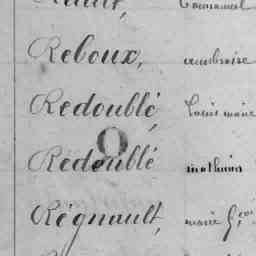 Reboux, ambroise
Redoublé, Louis marie
Redoublé mathurin
Régnault, marie